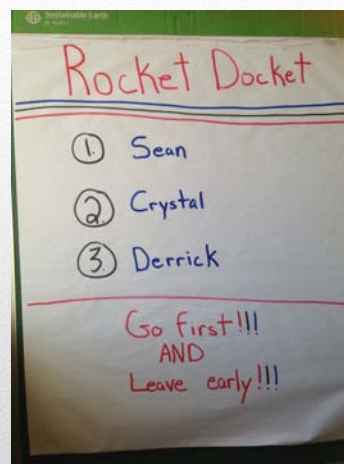 Sustainable Earth
Rocket Docket
1. Sean
2. Crystal
3. Derrick
Go first!!!
AND
Leave early!!!